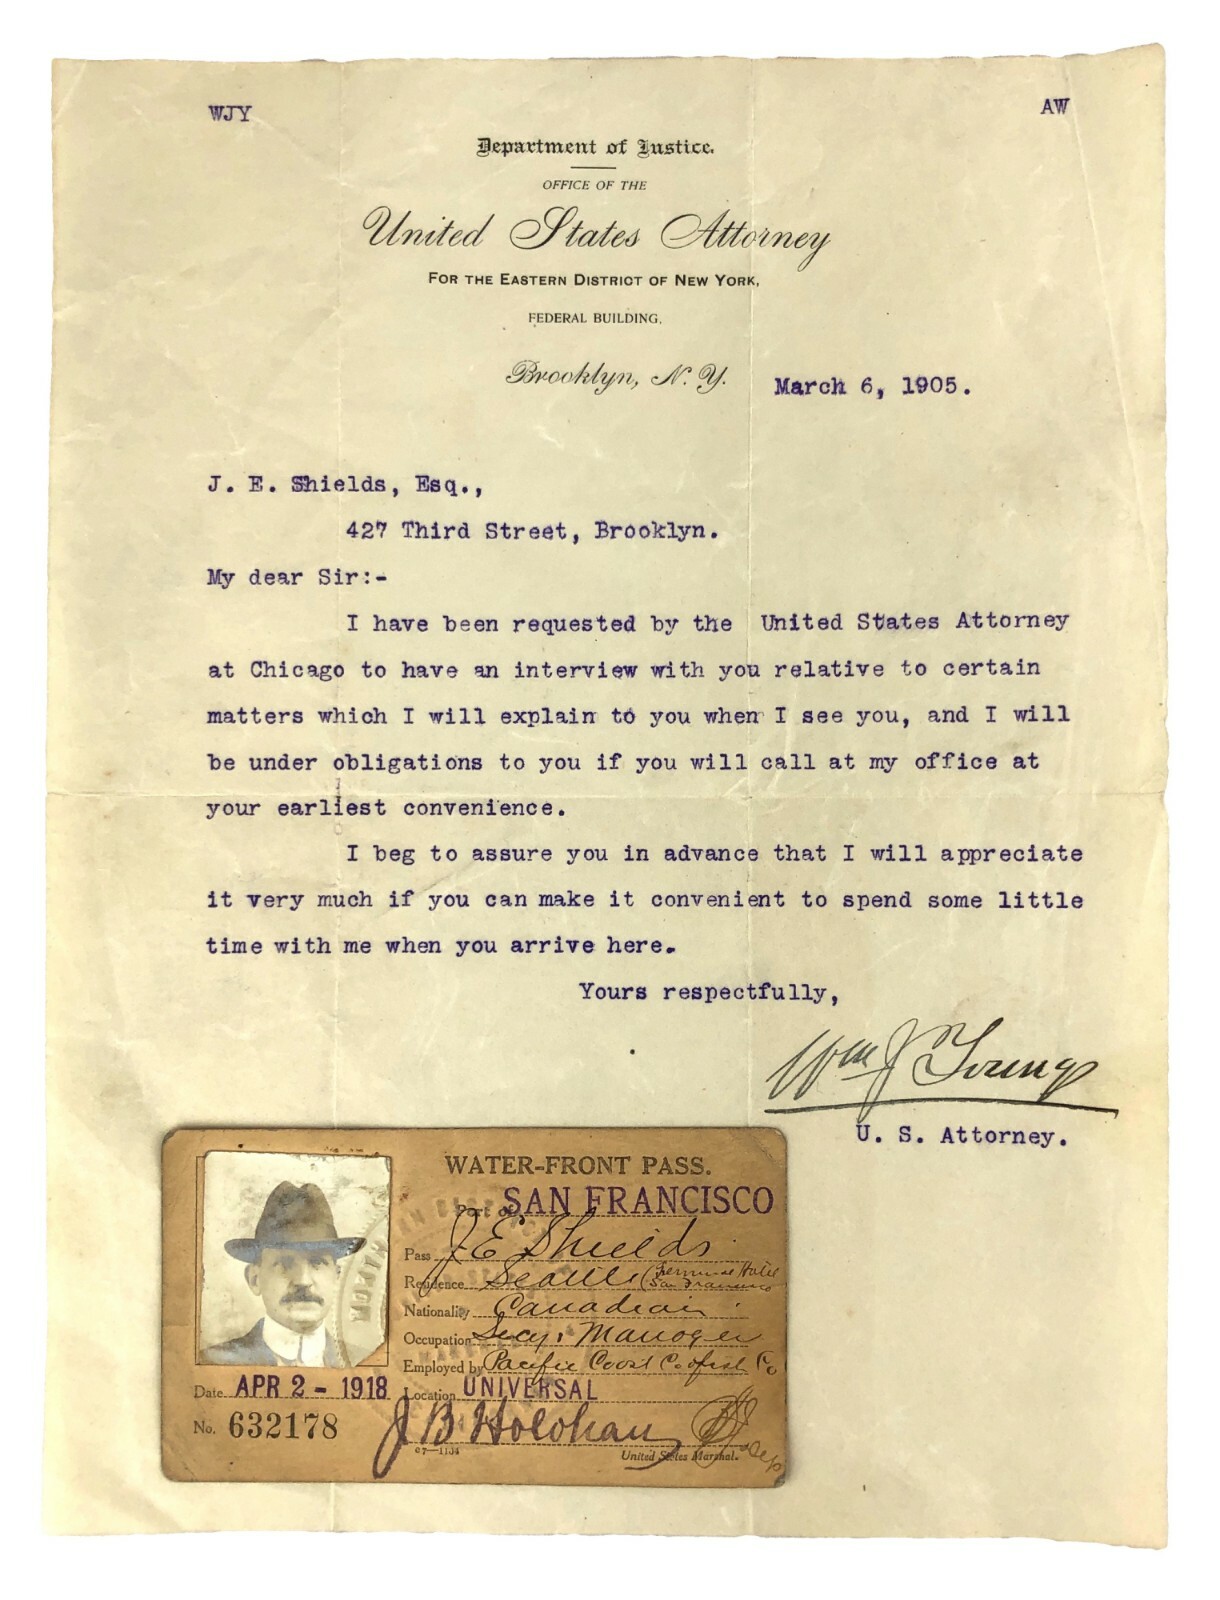 WJY AW
Department of Justice.
OFFICE OF THE
United States Attorney
FOR THE EASTERN DISTRICT OF NEW YORK,
FEDERAL BUILDING,
Brooklyn, N. Y. March 6, 1905.
J. E. Shields, Esq.,
427 Third Street, Brooklyn.
My dear Sir:-
I have been requested by the United States Attorney
at Chicago to have an interview with you relative to certain
matters which I will explain to you when I see you, and I will
be under obligations to you if you will call at my office at
your earliest convenience.
I beg to assure you in advance that I will appreciate
it very much if you can make it convenient to spend some little
time with me when you arrive here.
Yours respectfully,
Wm J Young
U. S. Attorney.
WATER-FRONT PASS.
Port of SAN FRANCISCO
Pass J E Shields
Residence Seattle (Terminal Hotel
San Francisco
Nationality Canadian
Occupation Secy. Manager
Employed by Pacific Coast Codfish Co
Date APR 2 - 1918 Location UNIVERSAL
No. 632178 J B Holohan
C7-1134
United States Marshal.
Dep